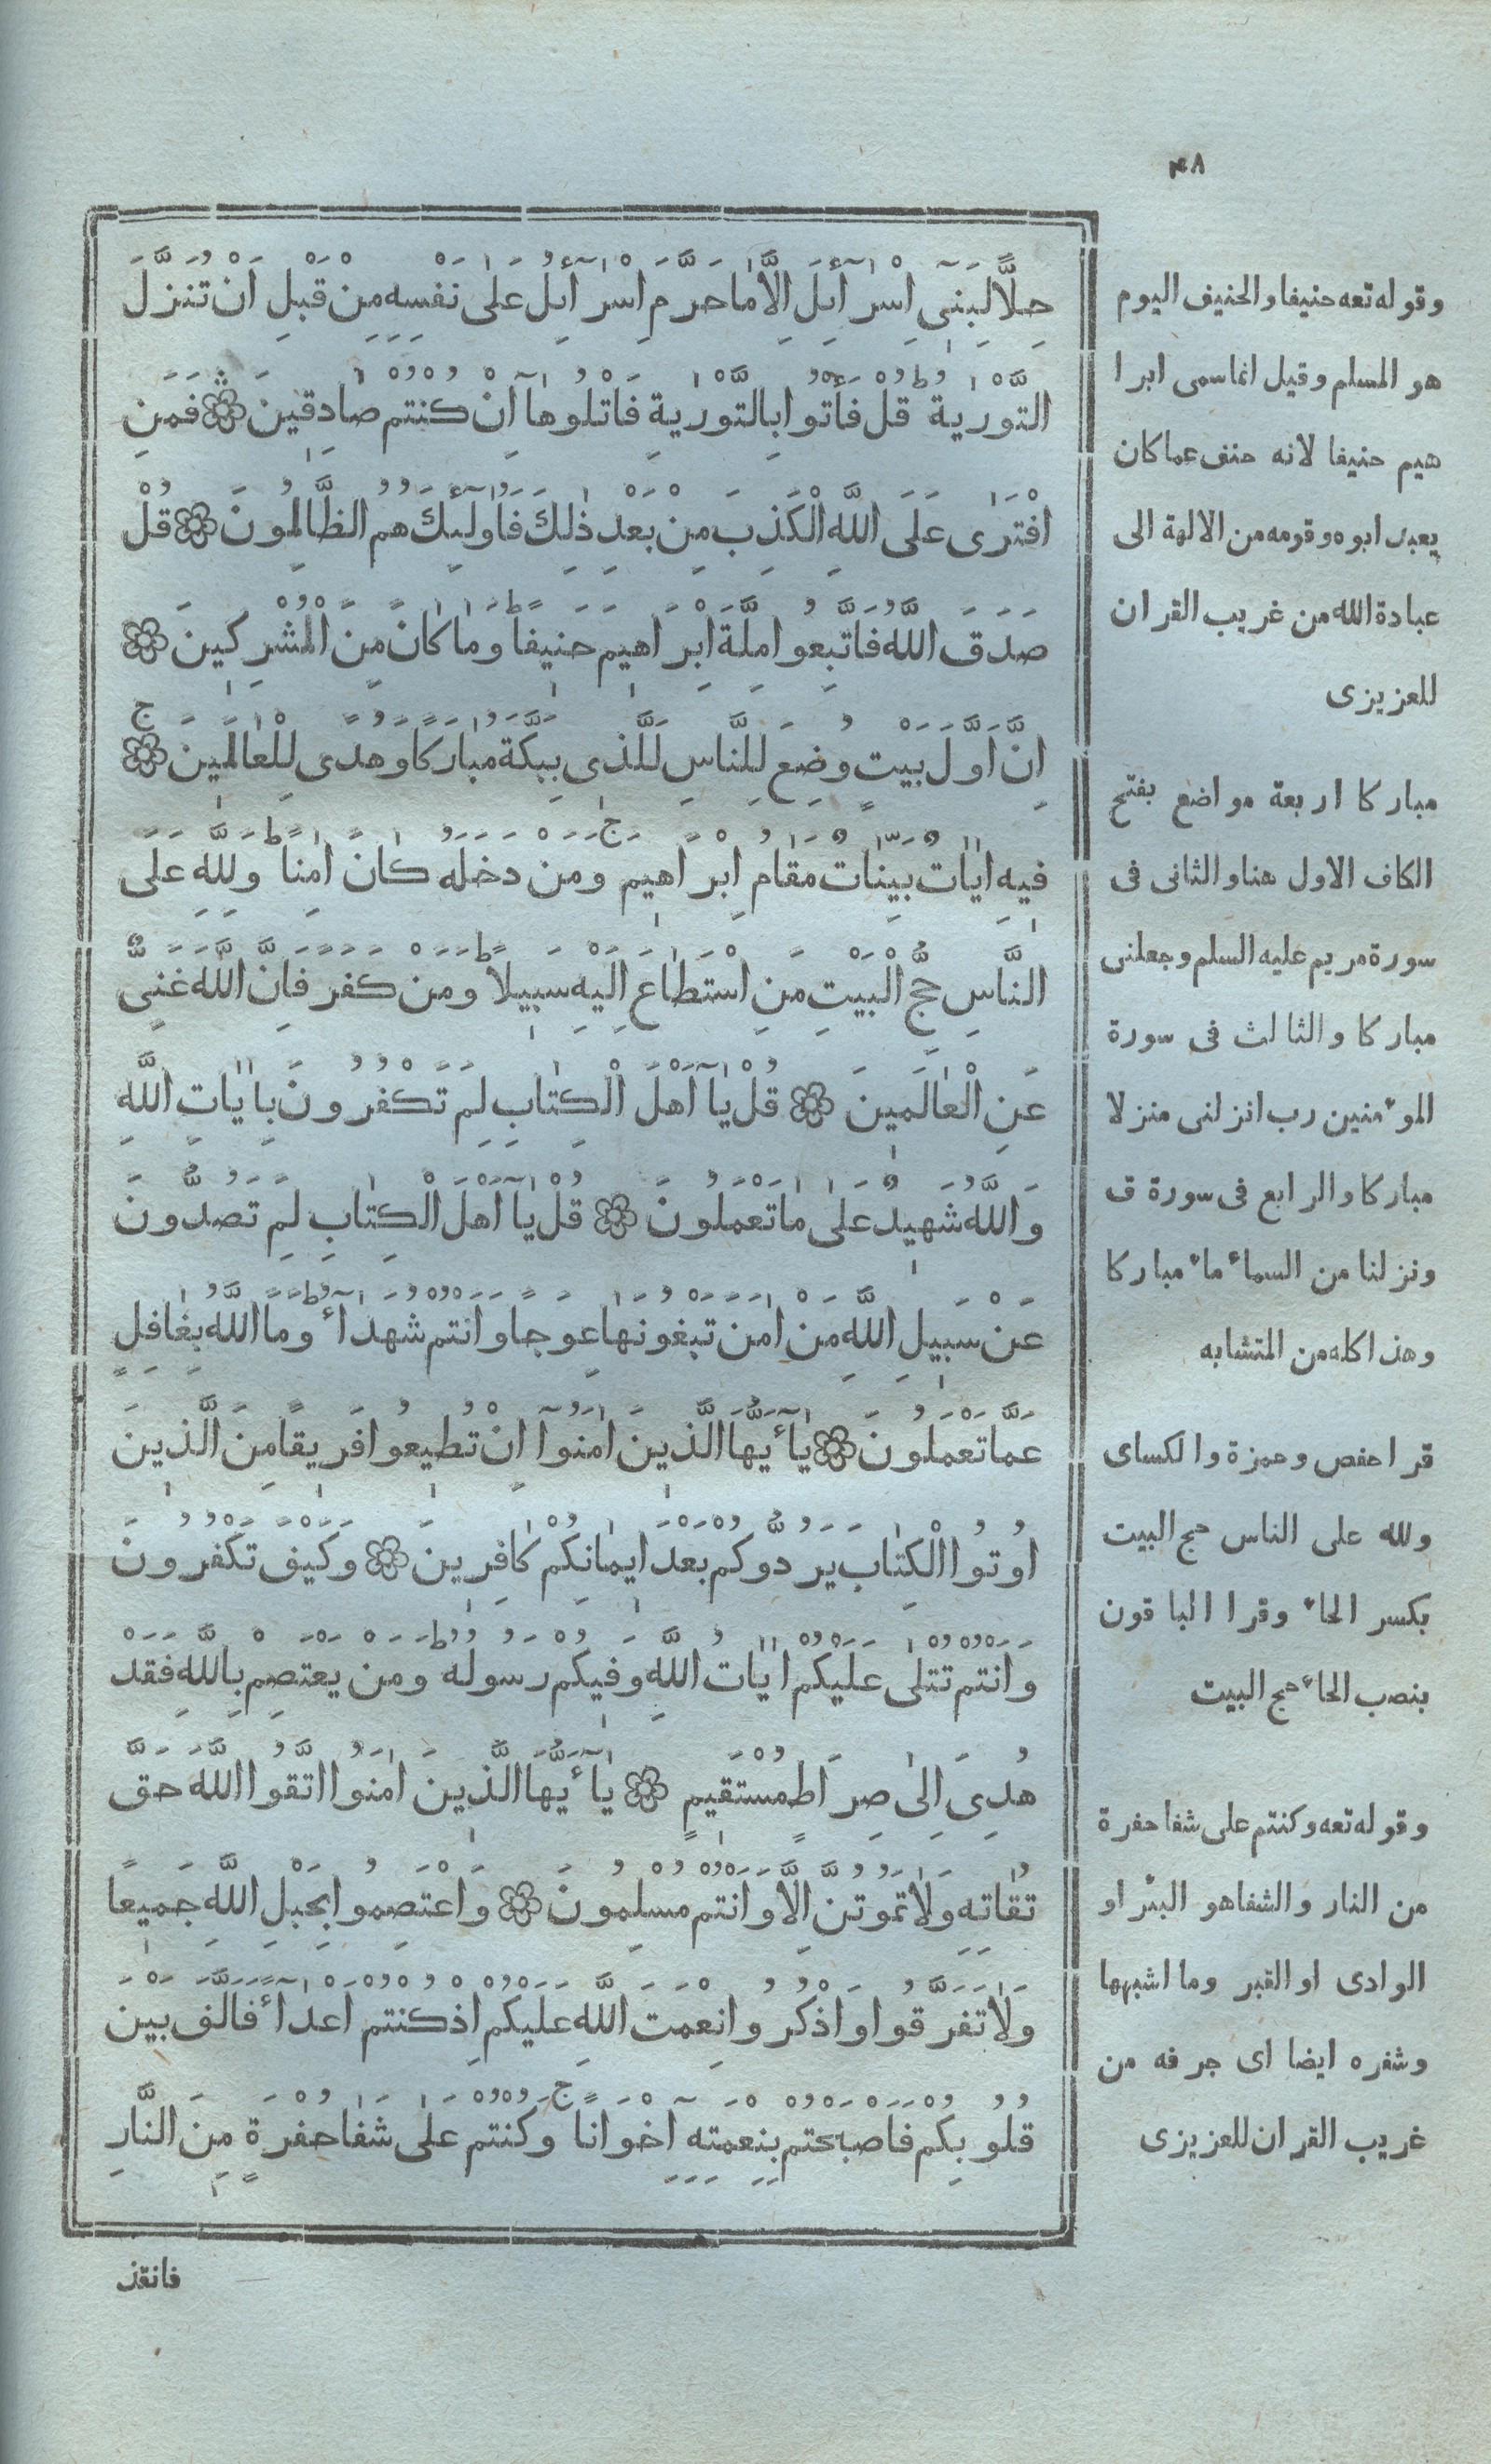 ٤٨
حِلًّا لِبَنِىٓ اِسْرَآئِلَ اِلَّا مَا حَرَّمَ اِسْرَآئِلُ عَلٰى نَفْسِهِ مِنْ قَبْلِ اَنْ تُنَزَّلَ
التَّوْرٰيةُ قُلْ فَأْتُوا بِالتَّوْرٰيةِ فَاتْلُوهَآ اِنْ كُنْتُمْ صَادِقِينَ فَمَنِ
افْتَرٰى عَلَى اللَّهِ الْكَذِبَ مِنْ بَعْدِ ذٰلِكَ فَاُولٰٓئِكَ هُمُ الظَّالِمُونَ قُلْ
صَدَقَ اللَّهُ فَاتَّبِعُوا مِلَّةَ اِبْرَاهِيمَ حَنِيفًا وَمَا كَانَ مِنَ الْمُشْرِكِينَ
اِنَّ اَوَّلَ بَيْتٍ وُضِعَ لِلنَّاسِ لَلَّذِى بِبَكَّةَ مُبَارَكًا وَهُدًى لِلْعَالَمِينَ
فِيهِ اٰيَاتٌ بَيِّنَاتٌ مَقَامُ اِبْرَاهِيمَ وَمَنْ دَخَلَهُ كَانَ اٰمِنًا وَلِلَّهِ عَلَى
النَّاسِ حَجُّ الْبَيْتِ مَنِ اسْتَطَاعَ اِلَيْهِ سَبِيلًا وَمَنْ كَفَرَ فَاِنَّ اللَّهَ غَنِىٌّ
عَنِ الْعَالَمِينَ قُلْ يَآ اَهْلَ الْكِتَابِ لِمَ تَكْفُرُونَ بِاٰيَاتِ اللَّهِ
وَاللَّهُ شَهِيدٌ عَلٰى مَا تَعْمَلُونَ قُلْ يَآ اَهْلَ الْكِتَابِ لِمَ تَصُدُّونَ
عَنْ سَبِيلِ اللَّهِ مَنْ اٰمَنَ تَبْغُونَهَا عِوَجًا وَاَنْتُمْ شُهَدَآءُ وَمَا اللَّهُ بِغَافِلٍ
عَمَّا تَعْمَلُونَ يَآ ءَيُّهَا الَّذِينَ اٰمَنُوٓا اِنْ تُطِيعُوا فَرِيقًا مِنَ الَّذِينَ
اُوتُوا الْكِتَابَ يَرُدُّوكُمْ بَعْدَ اِيمَانِكُمْ كَافِرِينَ وَكَيْفَ تَكْفُرُونَ
وَاَنْتُمْ تُتْلٰى عَلَيْكُمْ اٰيَاتُ اللَّهِ وَفِيكُمْ رَسُولُهُ وَمَنْ يَعْتَصِمْ بِاللَّهِ فَقَدْ
هُدِىَ اِلٰى صِرَاطٍ مُسْتَقِيمٍ يَآ ءَيُّهَا الَّذِينَ اٰمَنُوا اتَّقُوا اللَّهَ حَقَّ
تُقَاتِهِ وَلَا تَمُوتُنَّ اِلَّا وَاَنْتُمْ مُسْلِمُونَ وَاعْتَصِمُوا بِحَبْلِ اللَّهِ جَمِيعًا
وَلَا تَفَرَّقُوا وَاذْكُرُوا نِعْمَتَ اللَّهِ عَلَيْكُمْ اِذْ كُنْتُمْ اَعْدَآءً فَاَلَّفَ بَيْنَ
قُلُوبِكُمْ فَاَصْبَحْتُمْ بِنِعْمَتِهٓ اِخْوَانًا وَكُنْتُمْ عَلٰى شَفَا حُفْرَةٍ مِنَ النَّارِ
فانقذ
وقوله تعه حنيفا والحنيف اليوم
هو المسلم وقيل انما سمى ابرا
هيم حنيفا لانه حنف عما كان
يعبد ابوه وقومه من الالهة الى
عبادة الله من غريب القران
للعزيزى
مباركا اربعة مواضع بفتح
الكاف الاول هنا والثانى فى
سورة مريم عليه السلم وجعلنى
مباركا والثالث فى سورة
الموءمنين رب انزلنى منزلا
مباركا والرابع فى سورة ق
ونزلنا من السماء ماء مباركا
وهذا كله من المتشابه
قرا حفص وحمزة والكساى
ولله على الناس حج البيت
بكسر الحاء وقرا الباقون
بنصب الحاء حج البيت
وقوله تعه وكنتم على شفا حفرة
من النار والشفا هو البئر او
الوادى او القبر وما اشبهها
وشفره ايضا اى جرفه من
غريب القران للعزيزى